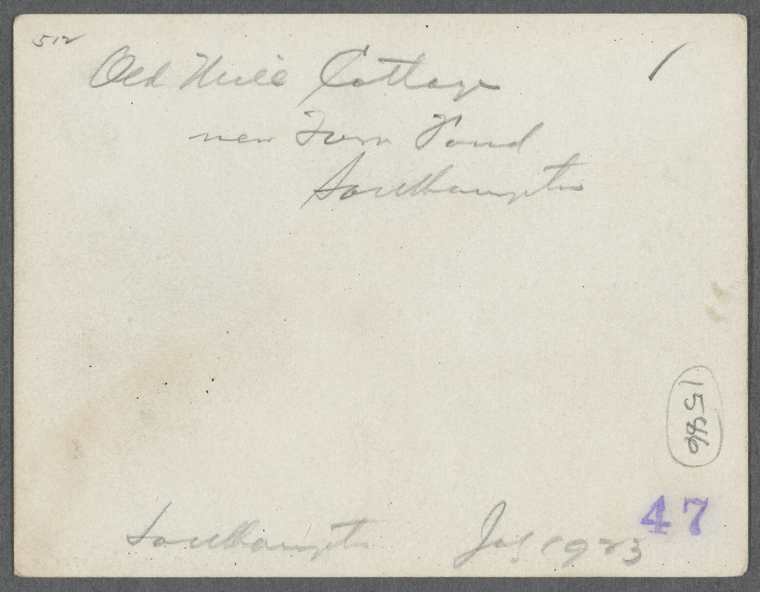 512
Old Mill Cottage
/
near Town Pond
Southampton
1586
47
Southampton July 1923